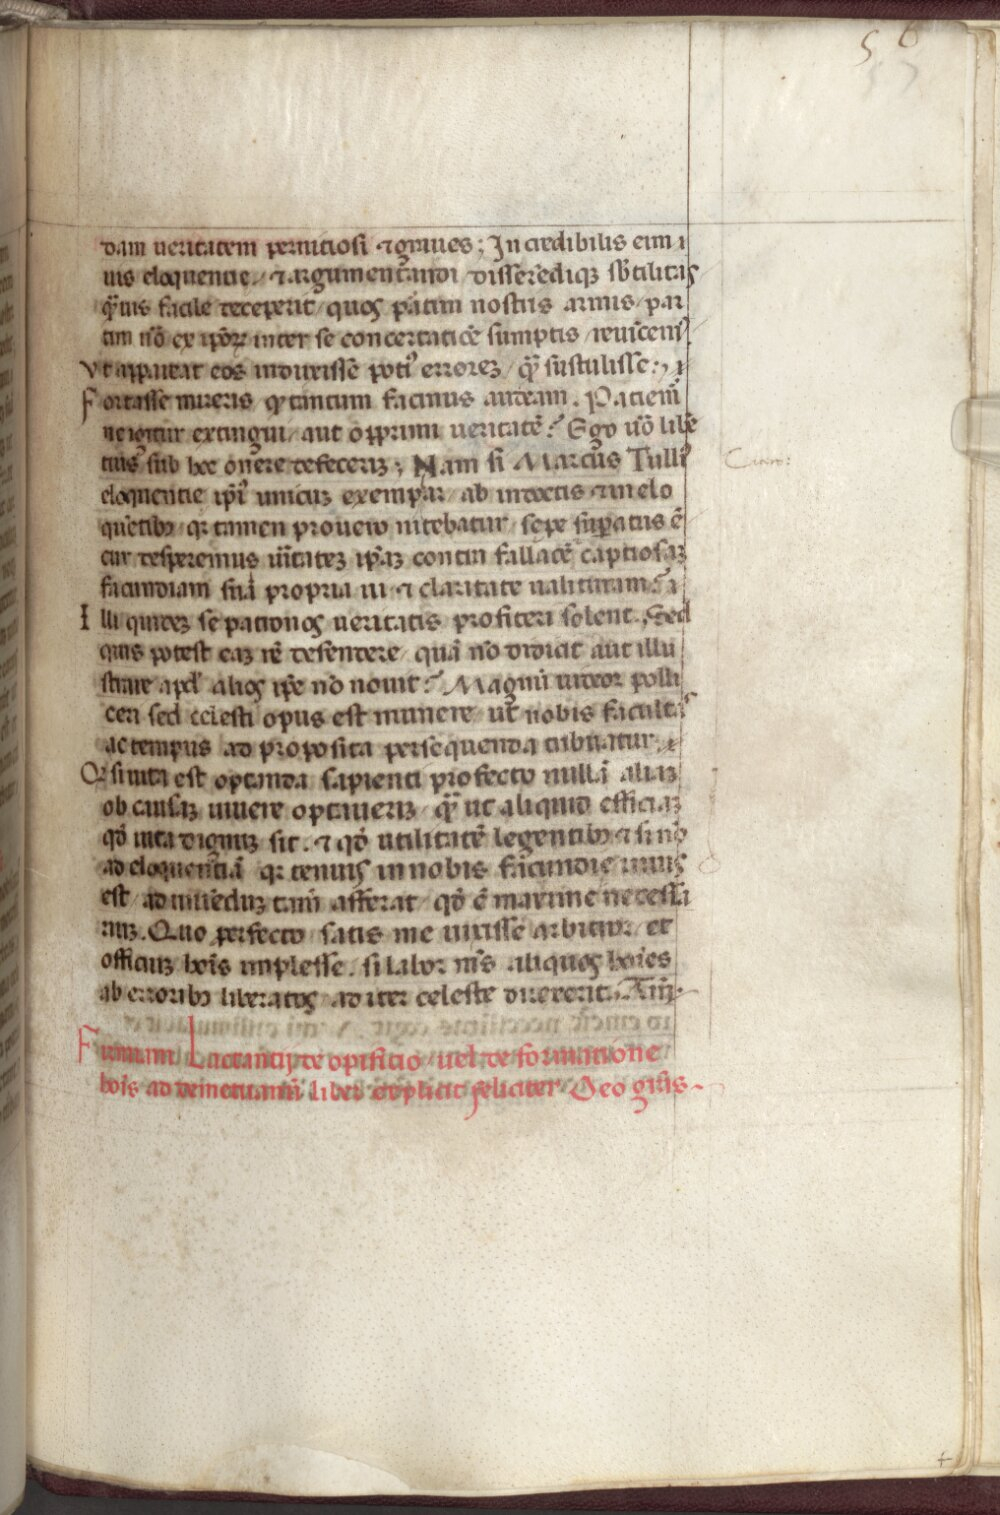 56
57
dam ueritatem pernitiosi ⁊ graues; Incredibilis eim i
uis eloquentie / ⁊ argumentandi disserẽdiq; sb̃tilitas
q̃uis facile deceperit / quos partim nostris armis / par
tim ũo ex ip̃oꝝ inter se concertatiõe sumptis / reuicem᷒
Vt appareat eos induxisse poti᷒ errorez / q̃ sustulisse:
Fortasse mireris ꝙ tantum facinus audeam. Patiem᷒
ne igitur extingui / aut opprimi ueritatẽ? Ego ũo libẽ
tius sub hoc onere defecerim; Nam si Marcus Tulli᷒
eloquentie ip̃i᷒ unicuz exemplar / ab indoctis ⁊ inelo
quẽtibȝ qr tamen pro uero nitebatur / sepe sup̃atus ẽ
cur desperemus ũitatez ip̃az contra fallacẽ captiosaȝ
facundiam sua propria ui ⁊ claritate ualituram?
Illi quidez se patronos ueritatis profiteri solent. Sed
quis potest eaȝ rẽ defendere / quã nõ didicit aut illu
strare apd᷒ alios q̃ ip̃e nõ nouit? Magnũ uideor polli
ceri sed celesti opus est munere ut nobis facultas
ac tempus ad proposita persequenda tribuatur.
Qr si uita est optanda sapienti profecto nullã aliaȝ
ob causaȝ uiuere optauerim / q̃ ut aliquid efficiaȝ
qd᷒ uita dignuȝ sit. ⁊ qd᷒ utilitatẽ legentibȝ ⁊ si nõ
ad eloquentiã qr tenuis in nobis facundie riuus
est / ad uiuẽduȝ tam̃ afferat / qd᷒ ẽ maxime necessa
riuȝ. Quo perfecto satis me uixisse arbitror et
officiuȝ hoĩs implesse. si labor ms̃ aliquos hoĩes
ab erroribȝ liberatos ad iter celeste direxerit. Am̃.
Firmiani Lactantij de opificio / uel de formatione
hoĩs ad demetrianũ liber explicit feliciter Deo grãs